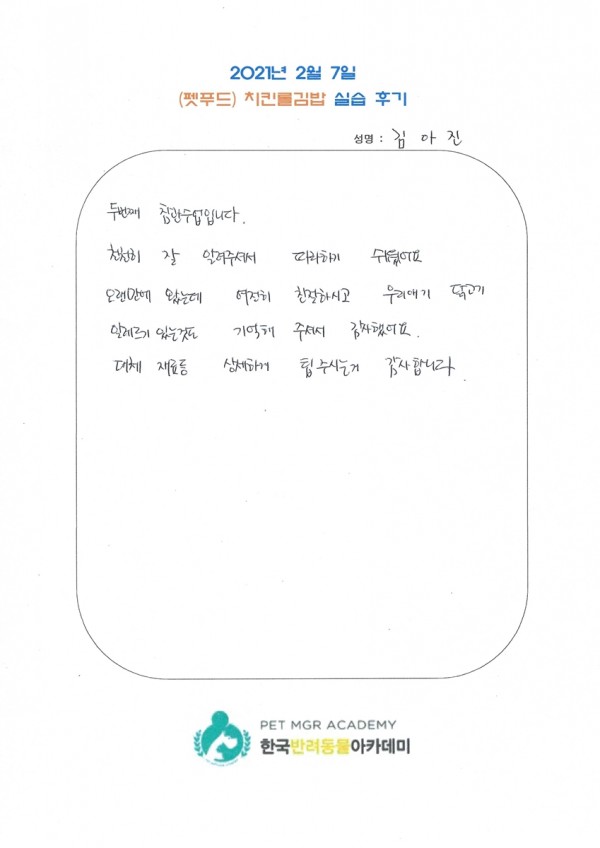 2021년 2월 7일
(펫푸드) 치킨롤김밥 실습 후기
성명 : 김아진
두번째 참관수업입니다.
천천히 잘 알려주셔서 따라하기 쉬웠어요
오랜만에 왔는데 여전히 친절하시고 우리애기 닭고기
알레르기 있는것도 기억해 주셔서 감사했어요.
대체 재료등 상세하게 팁주시는거 감사합니다
PET MGR ACADEMY
한국반려동물아카데미